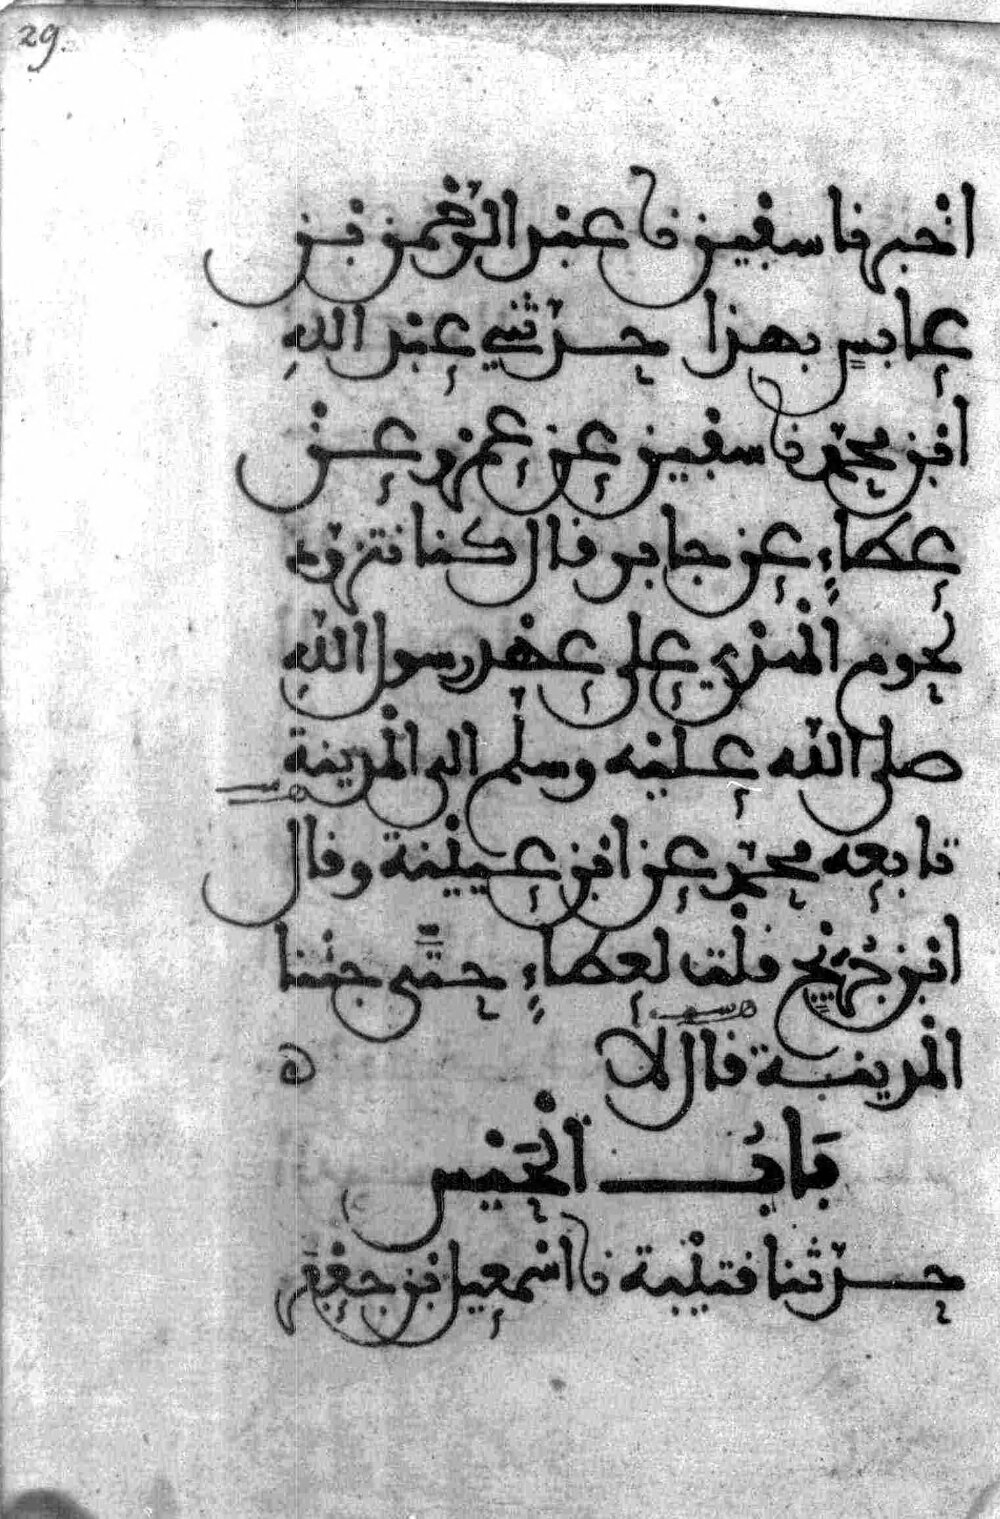 29
اخبرنا سفين نا عبد الرحمن بن
عابس بهذا حدثني عبد الله
ابن محمد نا سفين عن عمرو عن
عطاء عن جابر قال كنا نتزود
لحوم الهدي على عهد رسول الله
صلى الله عليه وسلم الى المدينة
تابعه محمد عن ابن عيينة وقال
ابن جريج قلت لعطاء حتى جئنا
المدينة قال لا ه
باب الحيس
حدثنا قتيبة نا اسمعيل بن جعفر